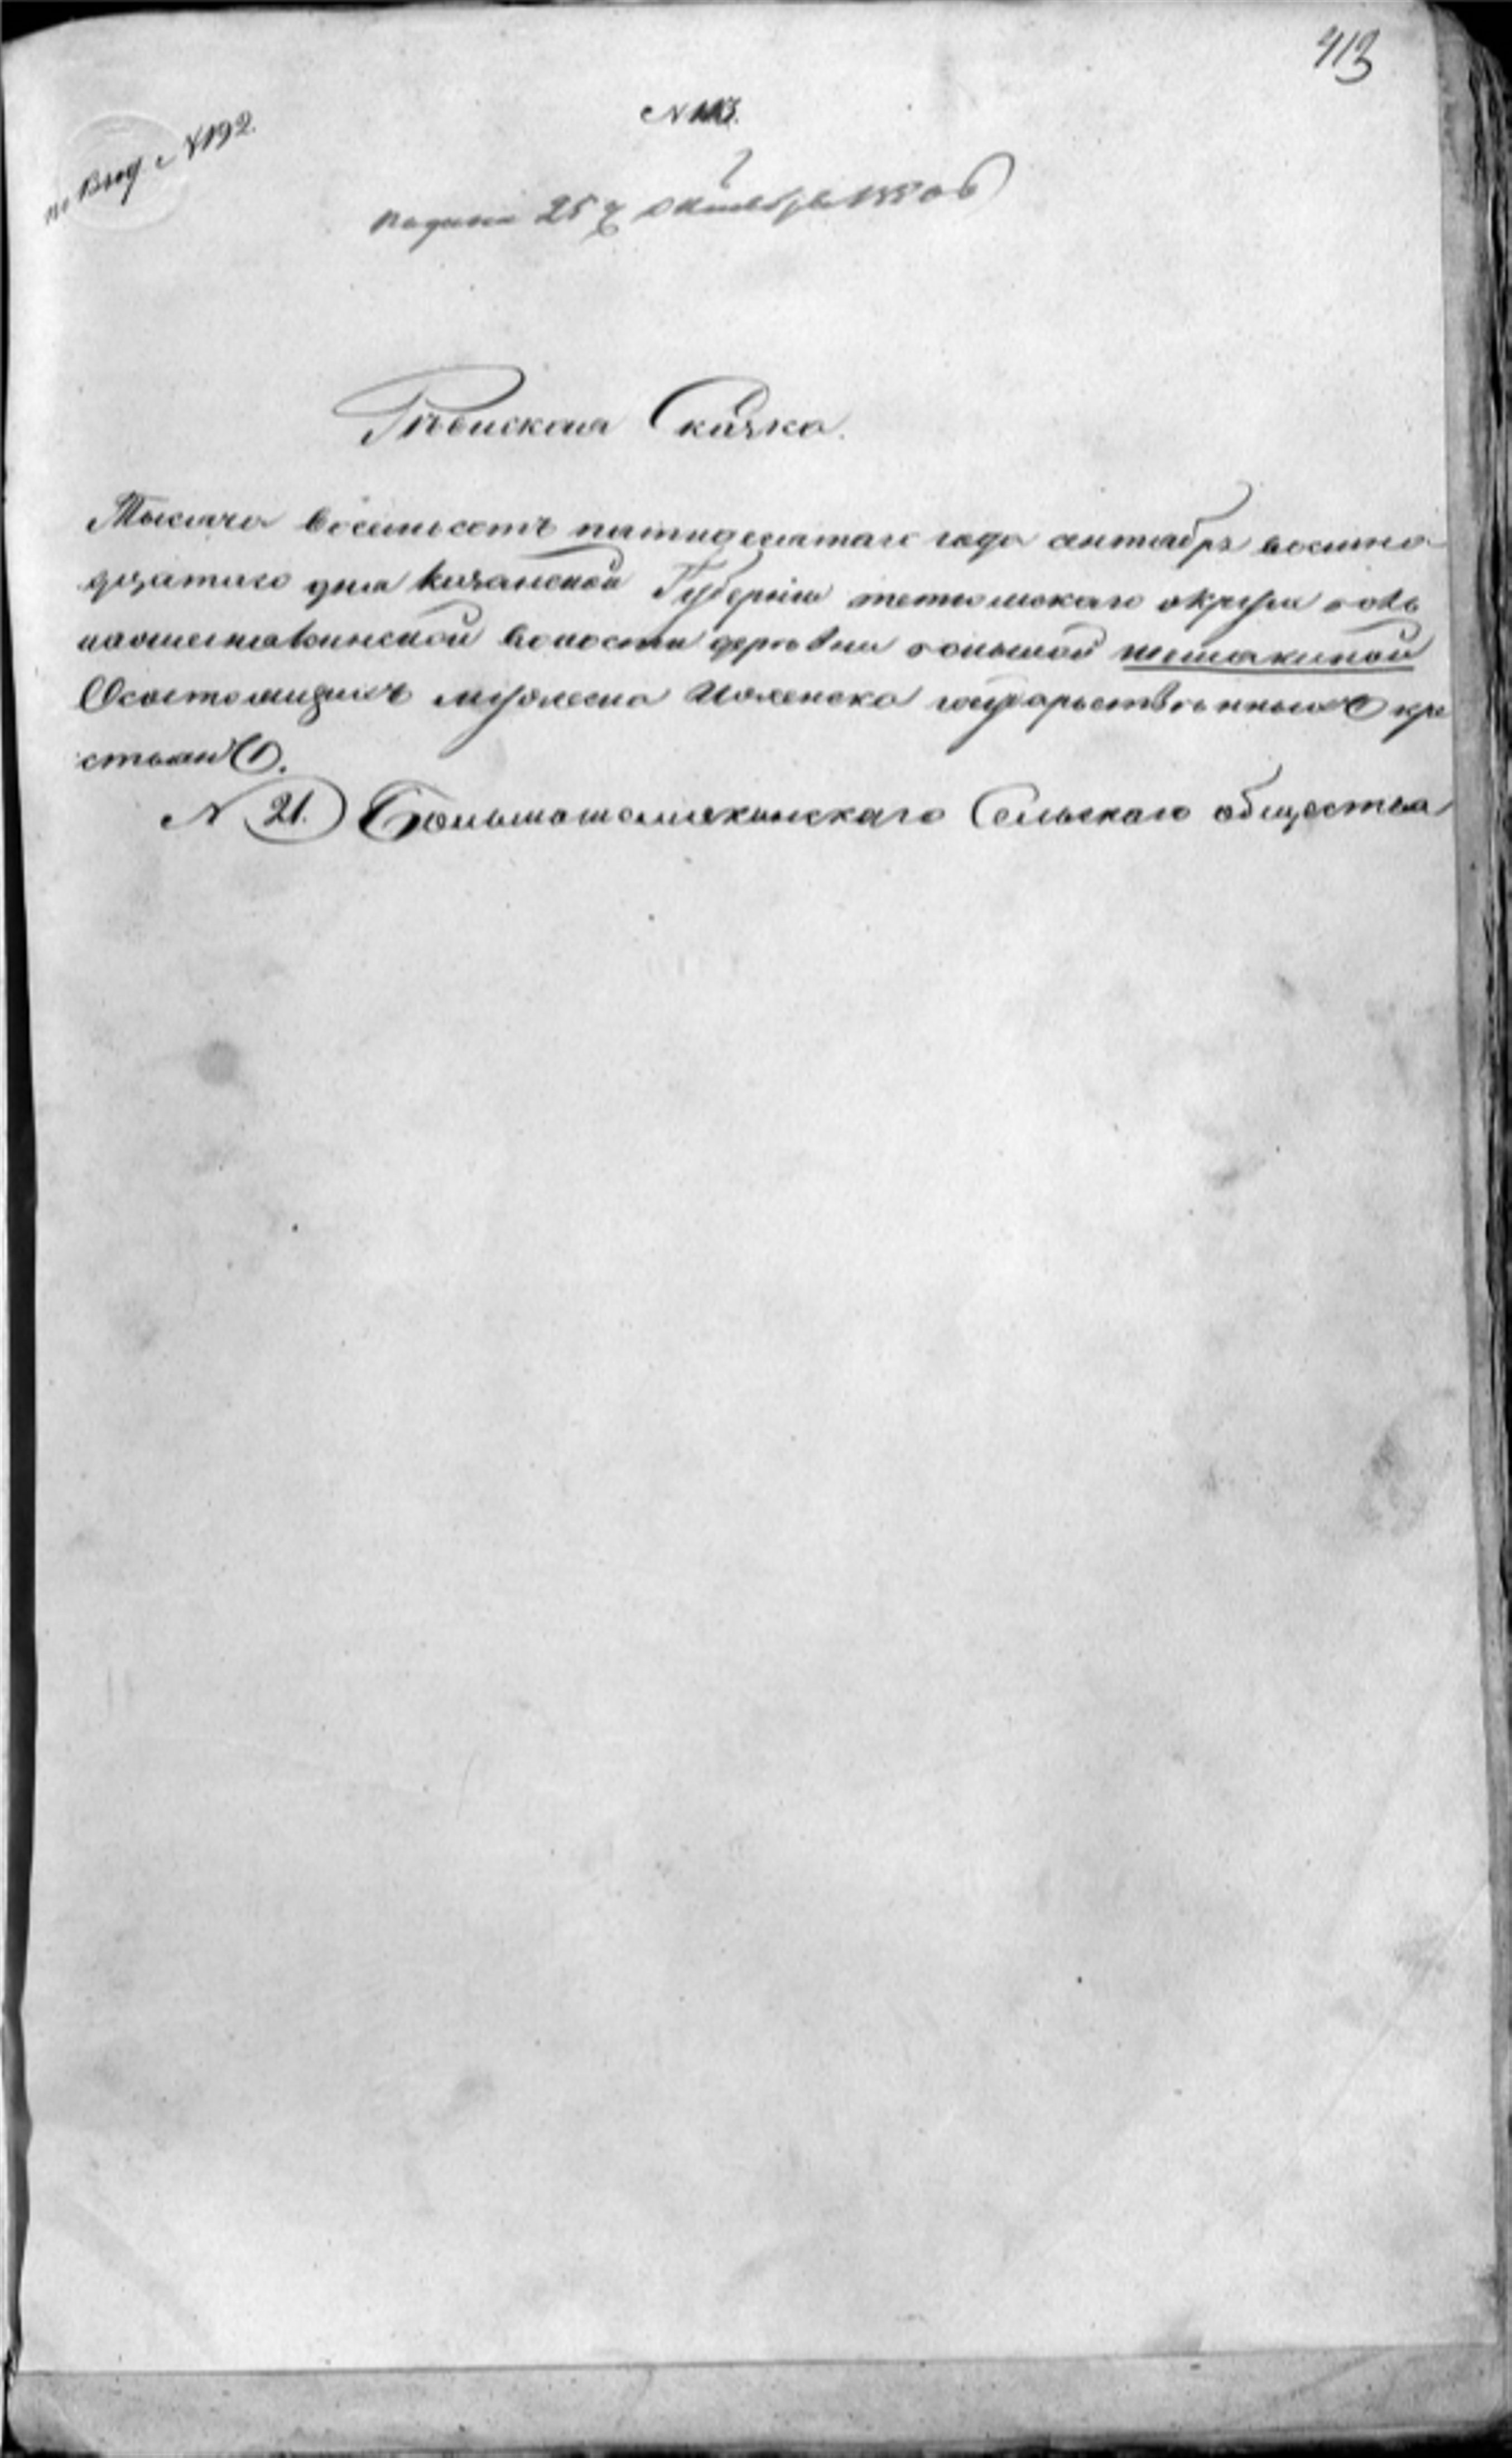 413
по Вход. №192.
№113.
подана 25 октября 1850
Ревиская Сказка.
Тысяча восемьсотъ пятидесятаго года сентября восемна
дцатаго дня казанской Губерніи тетюшскаго округа боль
шешемякинской волости деревни большой шемякиной
О состоящихъ мужеска и женска государьственныхъ кре
стьянъ.
№ 21. Большешемякинскаго Сельскаго общества